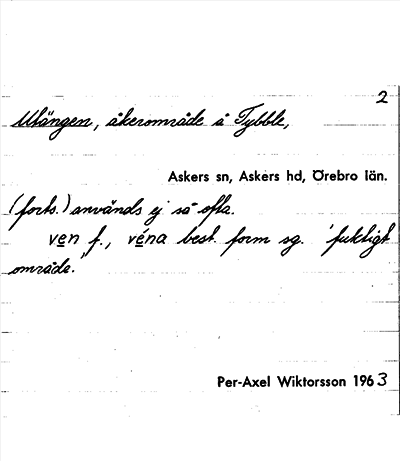 2
Utängen, åkerområde å Tybble,
Askers sn, Askers hd, Örebro län.
(forts.) används ej så ofta.
ven f., véna best. form sg. 'fuktigt
område.'
Per-Axel Wiktorsson 1963